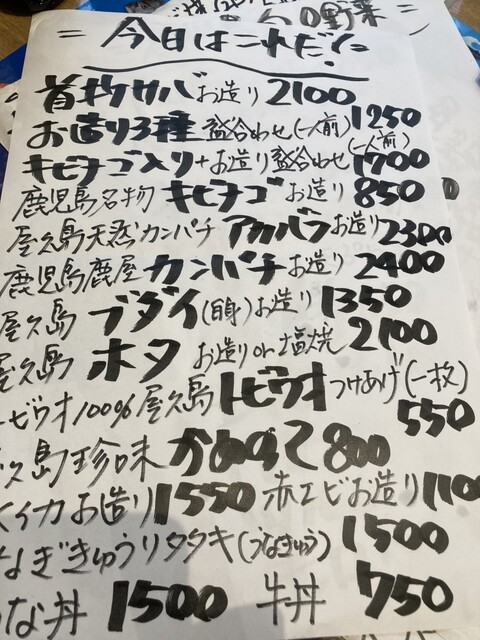 野菜
= 今日はこれだ! =
首折サバお造り 2100
お造り3種盛合わせ(一人前) 1250
キビナゴ入り+お造り盛合わせ(一人前) 1700
鹿児島名物 キビナゴ お造り 850
屋久島天然カンパチ アカバラお造り 2300
鹿児島鹿屋 カンパチ お造り 2400
屋久島 ブダイ(白身)お造り 1350
屋久島 ホタ お造りor塩焼 2100
ビウオ100%屋久島 トビウオ つけあげ(一枚) 550
久島珍味 かめのて 800
イカお造り 1550 赤エビお造り 1100
なぎきゅうりタタキ(うなきゅう) 1500
な丼 1500 牛丼 750